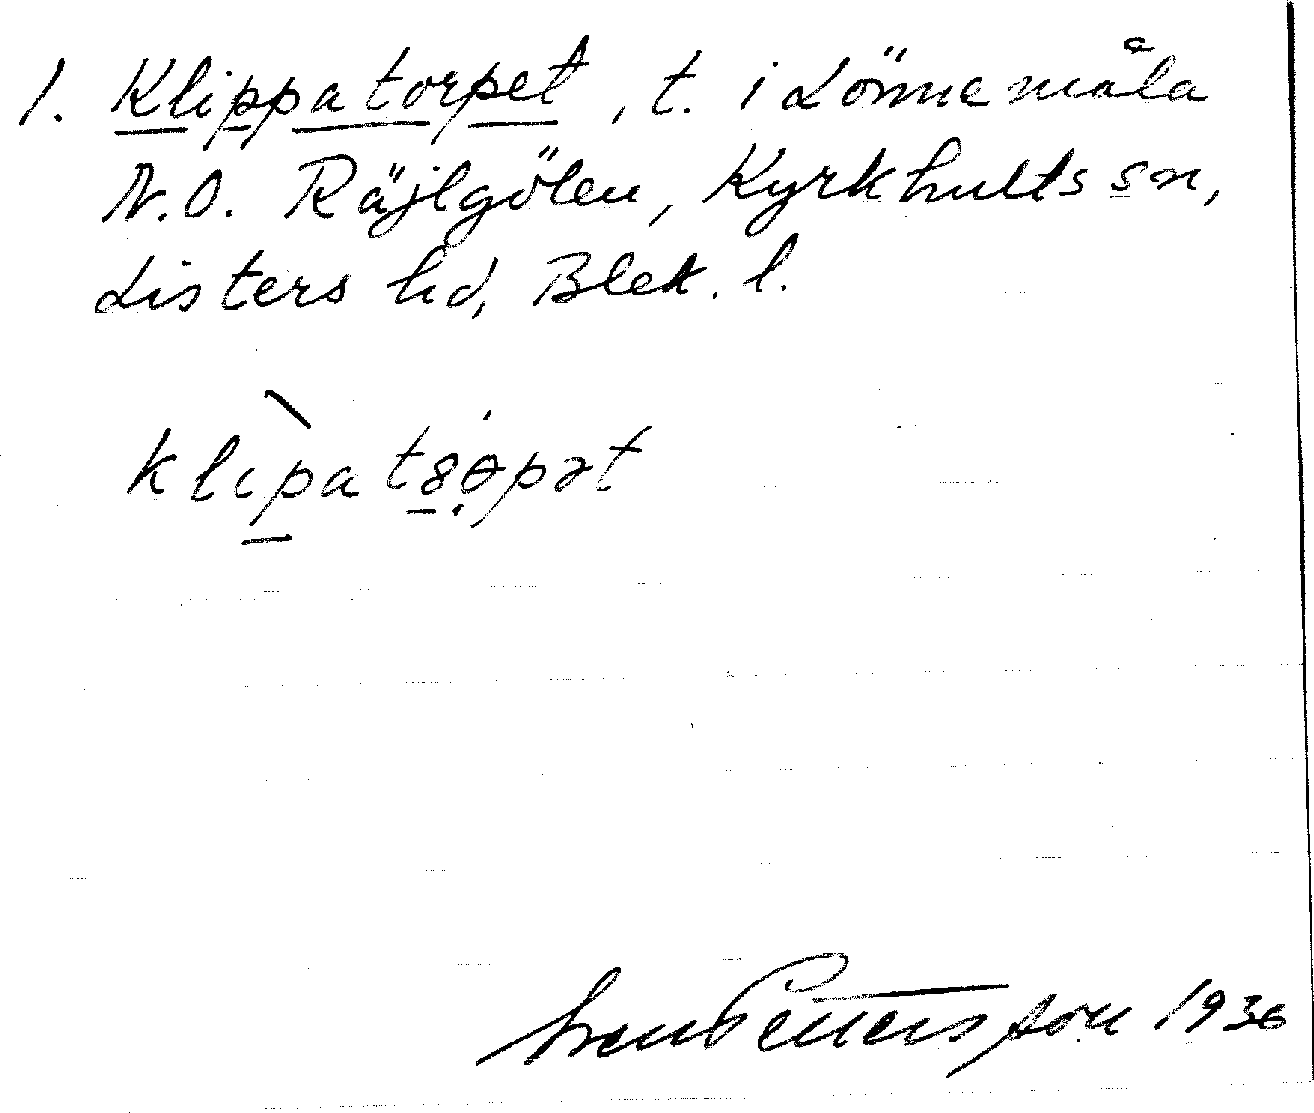 1. Klippatorpet, t. i Lönnemåla
N.O. Räjlgölen, Kyrkhults sn,
Listers hd, Blek. l.
Sven Pettersson 1936